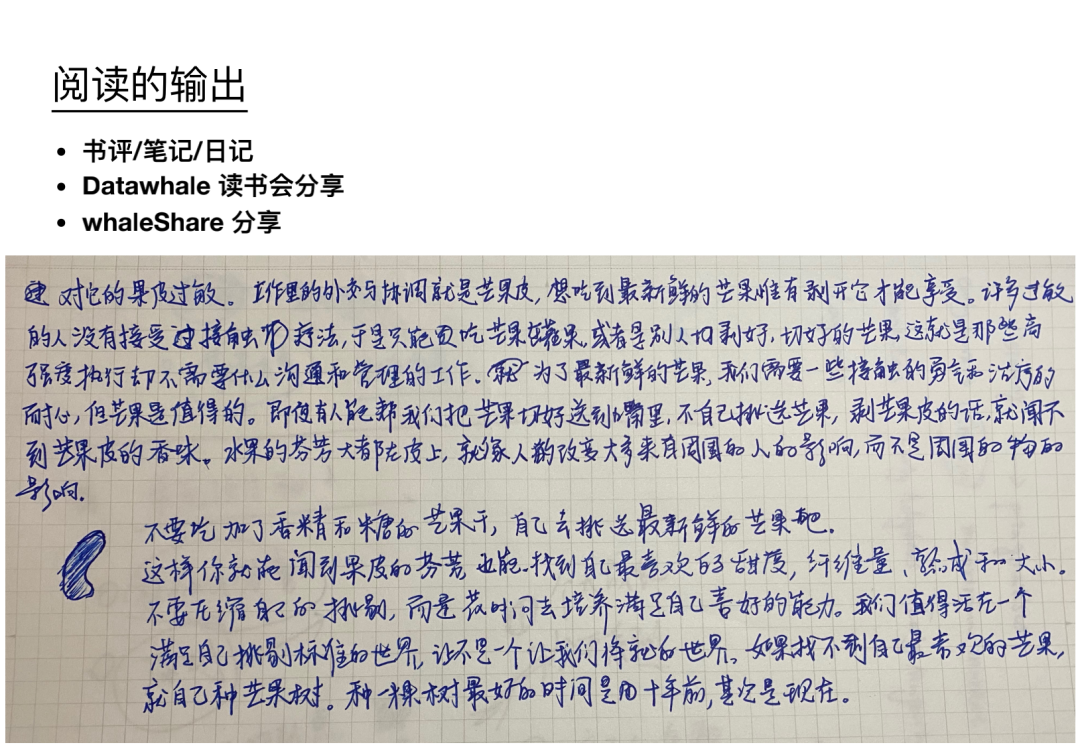 阅读的输出
书评/笔记/日记
Datawhale 读书会分享
whaleShare 分享
对它的果皮过敏。工作里的外交与协调就是芒果皮,想吃到最新鲜的芒果唯有剥开它才能享受。许多过敏
的人没有接受过接触疗法,于是只能买吃芒果罐果,或者是别人切剥好,切好的芒果,这就是那些高
强度执行却不需要什么沟通和管理的工作。为了最新鲜的芒果,我们需要一些接触的勇气和治疗的
耐心,但芒果是值得的。即便有人能帮我们把芒果切好送到嘴里,不自己挑选芒果,剥芒果皮的话,就闻不
到芒果皮的香味。水果的芬芳大都在皮上,就像人的改变大多来自周围的人的影响,而不是周围的物的
影响。
不要吃加了香精和糖的芒果干,自己去挑选最新鲜的芒果吧。
这样你就能闻到果皮的芬芳也能找到自己最喜欢的甜度,纤维量、熟成和大小。
不要压缩自己的挑剔,而是花时间去培养满足自己喜好的能力。我们值得活在一个
满足自己挑剔标准的世界,让不是一个让我们将就的世界。如果找不到自己最喜欢的芒果,
就自己种芒果树。种一棵树最好的时间是十年前,其次是现在。